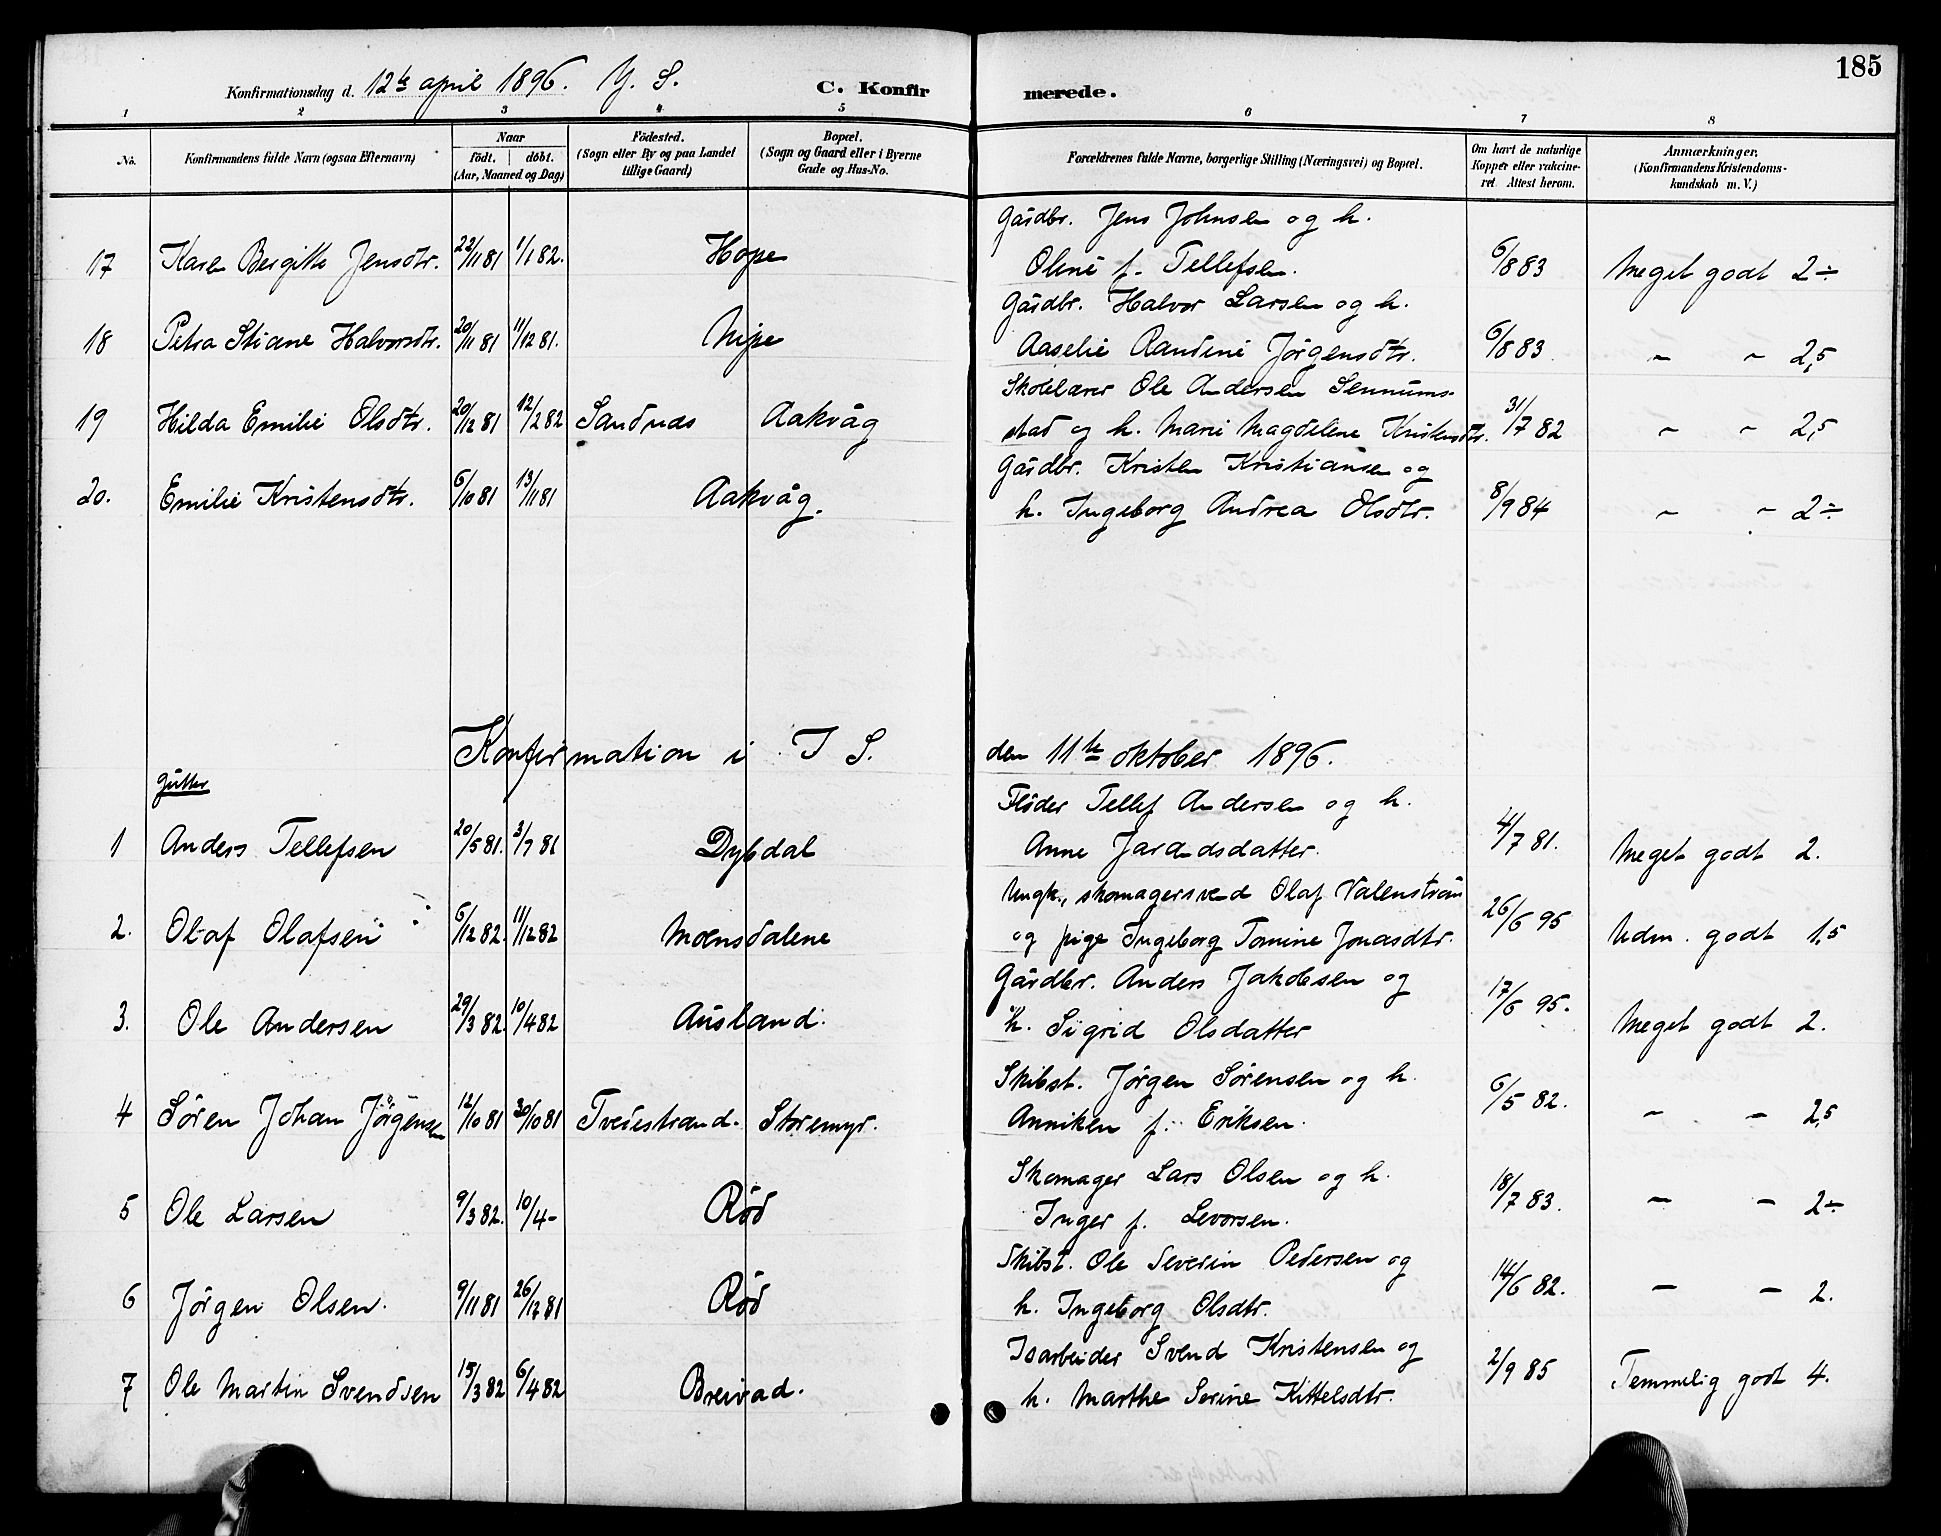 185
Konfirmationsdag d. 12te april 1896. Y. S. C. Konfirmerede.
1 2 3 4 5 6 7 8
No. Konfirmandens fulde Navn (ogsaa Efternavn) Naar födt. döbt. (Aar, Maaned og Dag) Födested. (Sogn eller By og paa Landet tillige Gaard) Bopæl. (Sogn og Gaard eller i Byerne Gade og Hus-No. Forældrenes fulde Navne, borgerlige Stilling (Næringsvei) og Bopæl. Om havt de naturlige Kopper eller vakcineret. Attest herom. Anmærkninger, (Konfirmandens Kristendomskundskab m. V.)
Gårdbr. Jens Johnsen og h.
17 Karen Bergitte Jensdtr. 22/11 81 1/1 82. Hope Oline f. Tellefsen. 6/8 83 Meget godt 2÷
Gårdbr. Halvor Larsen og h.
18 Petra Stiane Halvorsdtr. 20/11 81 11/12 81. Nipe Aaselie Randine Jörgensdtr. 6/8 83 ~ ~ 2,5
Skolelærer Ole Andersen Sennums-
19 Hilda Emilie Olsdtr. 20/12 81 12/2 82 Sandnæs Aakvåg stad og h. Marie Magdelene Kristensdtr. 31/7 82 ~ ~ 2,5
Gårdbr. Kristen Kristiansen og
20. Emilie Kristensdtr. 6/10 81 13/11 81 Aakvåg. h. Ingeborg Andrea Olsdtr. 8/9 84 ~ ~ 2÷
Konfirmation i I S. den 11te oktober 1896.
Gutter
Fløder Tellef Andersen og h.
1 Anders Tellefsen 20/5 81. 3/7 81 Dybdal Anne Jarandsdatter. 4/7 81. Meget godt 2.
Ungk., skomagersvend Olaf Valenström
2. Olaf Olafsen 6/12 82. 11/12 82 Moensdalene og pige Ingeborg Tomine Jonasdtr. 26/6 95 Udm. godt 1,5
Gårdbr. Anders Jakobsen og
3. Ole Andersen 29/3 82. 10/4 82 Ausland. h. Sigrid Olsdatter 17/6 95. Meget godt 2.
Skibst. Jörgen Sørensen og h.
4 Søren Johan Jörgensen 12/10 81 30/10 81 Tvedestrand. Storemyr. Anniken f. Eriksen. 6/5 82. ~ ~ 2,5
Skomager Lars Olsen og h.
5 Ole Larsen 9/3 82. 10/4 - Rød Inger f. Levorsen. 18/7 83. - - 2÷
Skibst. Ole Severin Pedersen og
6 Jörgen Olsen. 9/11 81 26/12 81 Rød h. Ingeborg Olsdtr. 14/6 82. - - 2.
Isarbeider Svend Kristensen og
7 Ole Martin Svendsen 15/3 82 6/4 82 Breivad. h. Marthe Serine Kittelsdtr. 2/9 85 Temmelig godt 4.